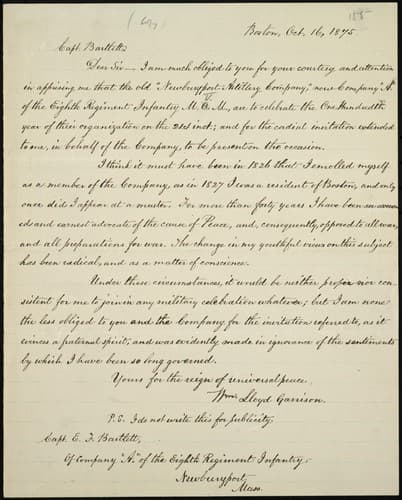 (Copy.)
Boston, Oct. 16, 1875
Capt. Bartlett:
Dear Sir — I am much obliged to you for your courtesy and attention
in apprising me that the old "Newburyport Artillery Company," now Company "A"
of the Eighth Regiment Infantry M. V. M., are to celebrate the One Hundredth
year of their organization on the 21st inst; and for the cordial invitation extended
to me, in behalf of the Company, to be present on the occasion.
I think it must have been in 1826 that I enrolled myself
as a member of the Company, as in 1827 I was a resident of Boston, and only
once did I appear at a muster. For more than forty years I have been an
and earnest advocate of the cause of Peace, and, consequently, opposed to all war,
and all preparations for war. The change in my youthful views on this subject
has been radical, and as a matter of conscience.
Under these circumstances, it would be neither proper nor con-
sistent for me to join in any military celebration whatever; but I am none
the less obliged to you and the Company for the invitation referred to, as it
evinces a fraternal spirit, and was evidently made in ignorance of the sentiments
by which I have been so long governed.
Yours for the reign of universal peace,
Wm. Lloyd Garrison.
P.S. I do not write this for publicity.
Capt. E. F. Bartlett,
Of Company "A," of the Eighth Regiment Infantry,
Newburyport,
Mass.